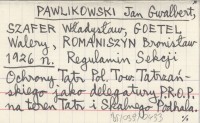 PAWLIKOWSKI Jan Gwalbert,
SZAFER Władysław, GOETEL
Walery, ROMANISZYN Bronisław
1926 r. Regulamin Sekcji
Ochrony Tatr Pol. Tow. Tatrzań-
skiego jako delegatury P.R.O.P.
na teren Tatr i Skalnego Podhala.